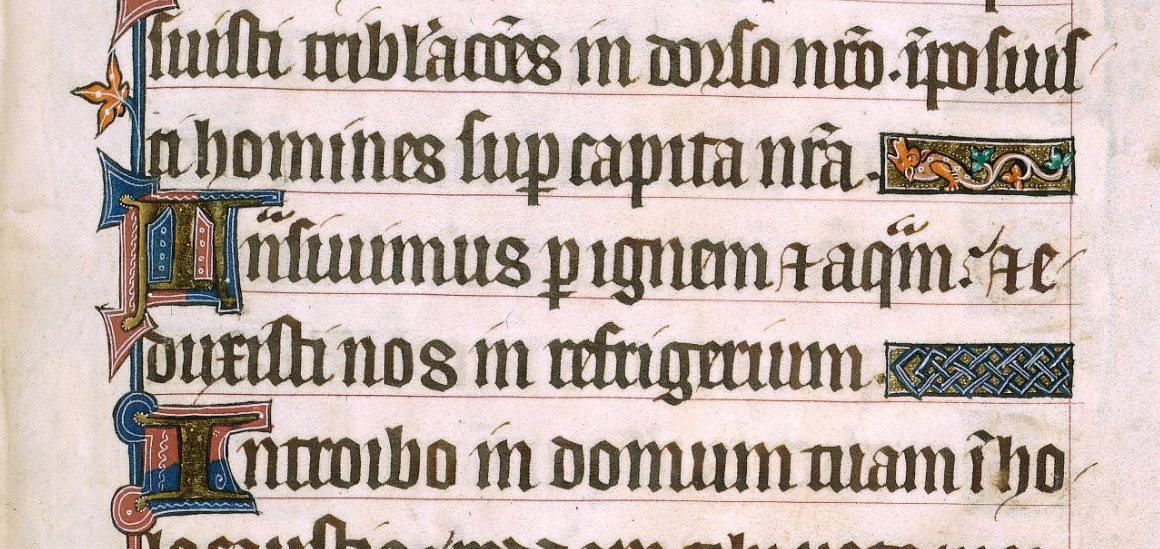 suisti tribl'acōēs in dorso nr̄o. īposuis
ti homines sup̱ capita nr̄a.
Tn̄siuimus p̱ ignem ⁊ aqᵃm: ⁊ e
duxisti nos in refrigerium.
Introibo in domum tuam ī ho